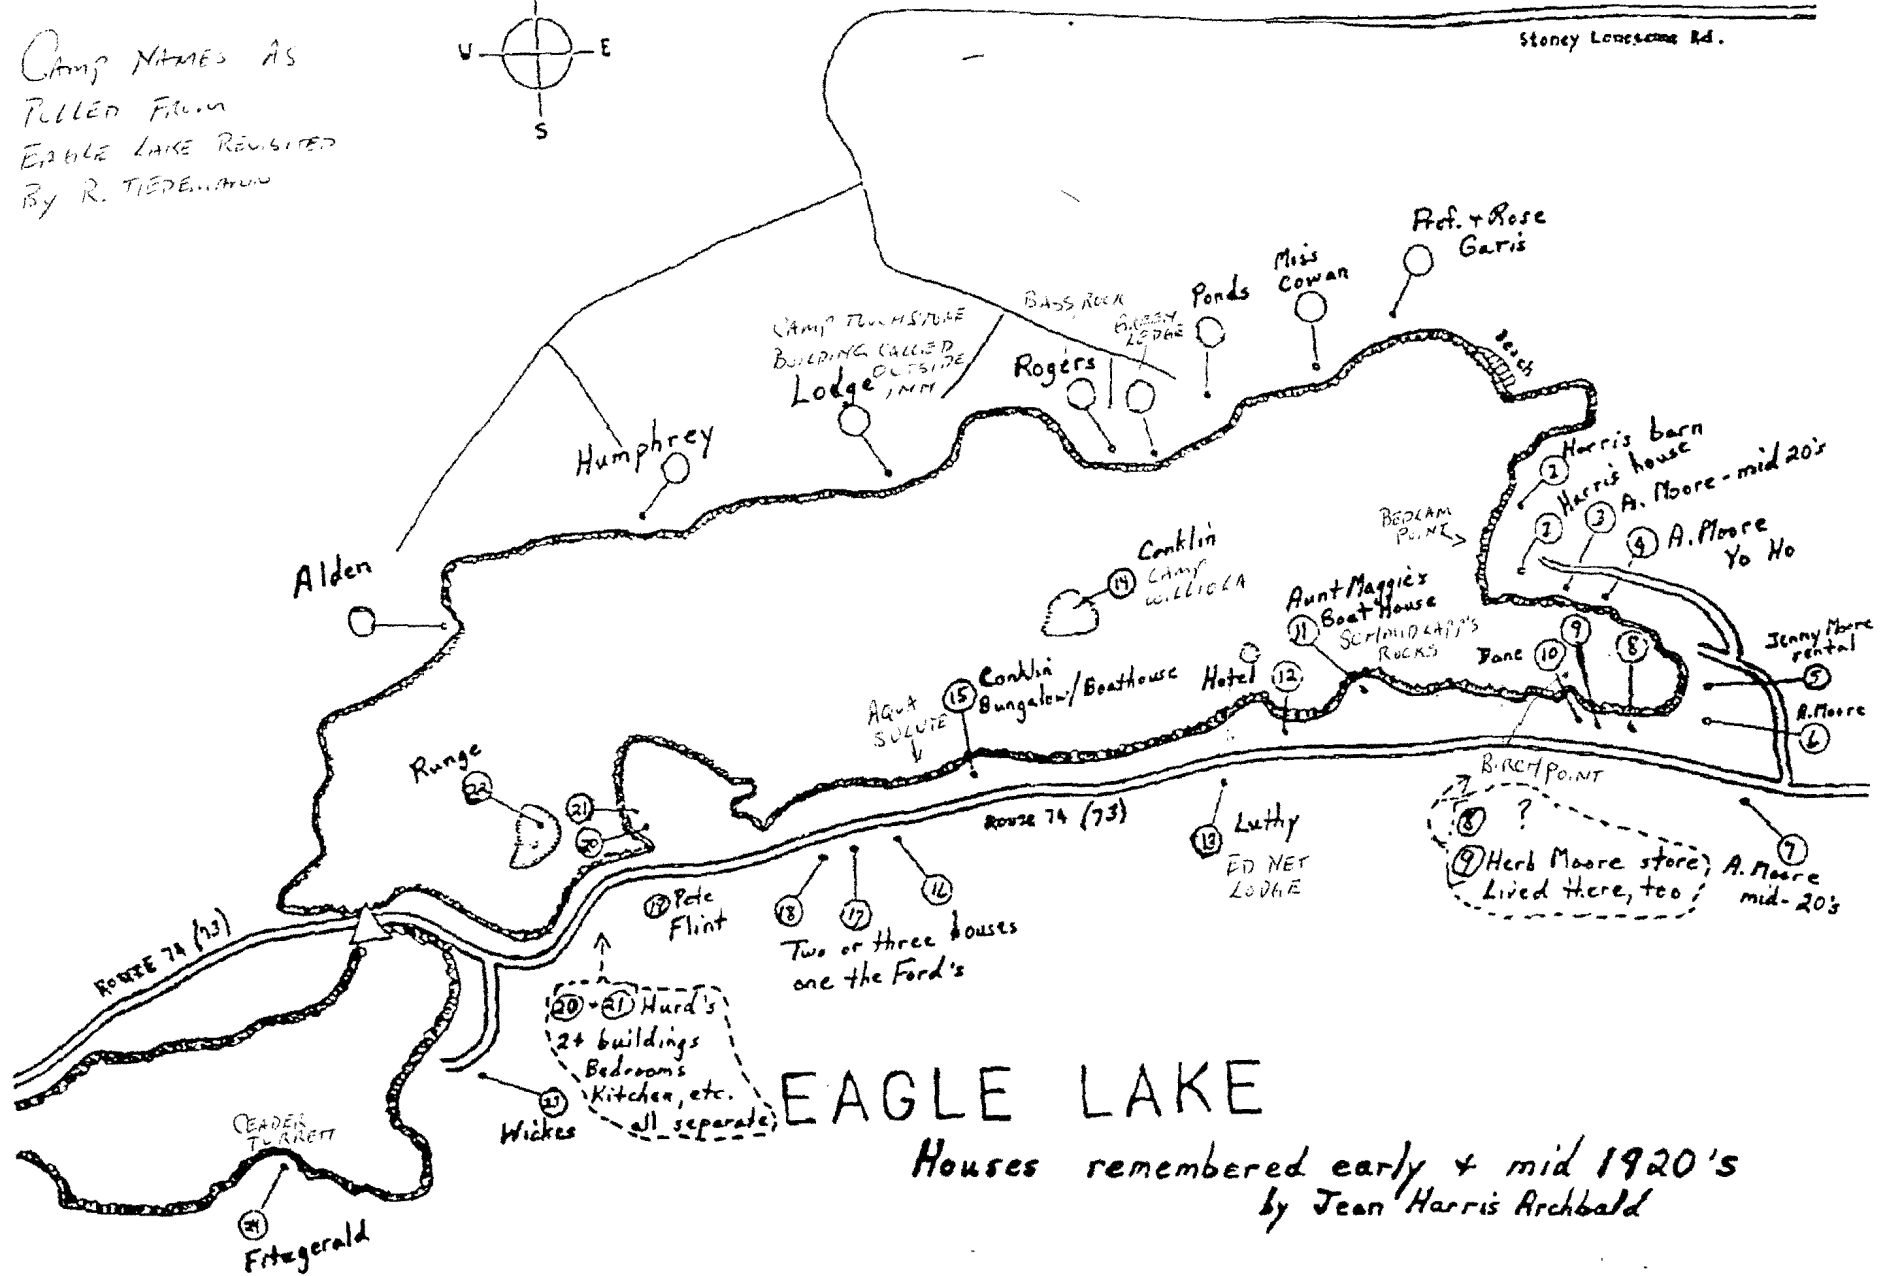 CAMP NAMES AS
PULLED FROM
EAGLE LAKE REVISITED
BY R. TIEDEMANN
W
E
S
Stoney Lonesome Rd.
Prof. + Rose
Garis
Miss
Cowan
Ponds
BASS ROCK
GREEN
LEDGE
Rogers
CAMP TOUCHSTONE
BUILDING CALLED
OUTSIDE
INN
Lodge
Humphrey
Alden
Beach
Harris barn
2
Harris house
2
A. Moore - mid 20's
3
A. Moore
Yo Ho
4
BEDLAM
POINT
Conklin
CAMP
WILLIOLA
14
Aunt Maggie's
Boat House
11
SCHMIDLAPP'S
ROCKS
Dane
10
9
8
Jenny Moore
rental
5
A. Moore
6
Hotel
12
Conklin
Bungalow/Boathouse
15
AQUA
SOLUTE
Runge
22
21
20
BIRCH POINT
ROUTE 74 (73)
Luthy
13
ED NET
LODGE
8 ?
9 Herb Moore store,
Lived there, too
7
A. Moore
mid-20's
19 Pete
Flint
18
17
16
Two or three houses
one the Ford's
ROUTE 74 (73)
20 + 21 Hurd's
2+ buildings
Bedrooms
Kitchen, etc.
all separate
23
Wickes
CEADER
TURRETT
24
Fitzgerald
EAGLE LAKE
Houses remembered early + mid 1920's
by Jean Harris Archbald